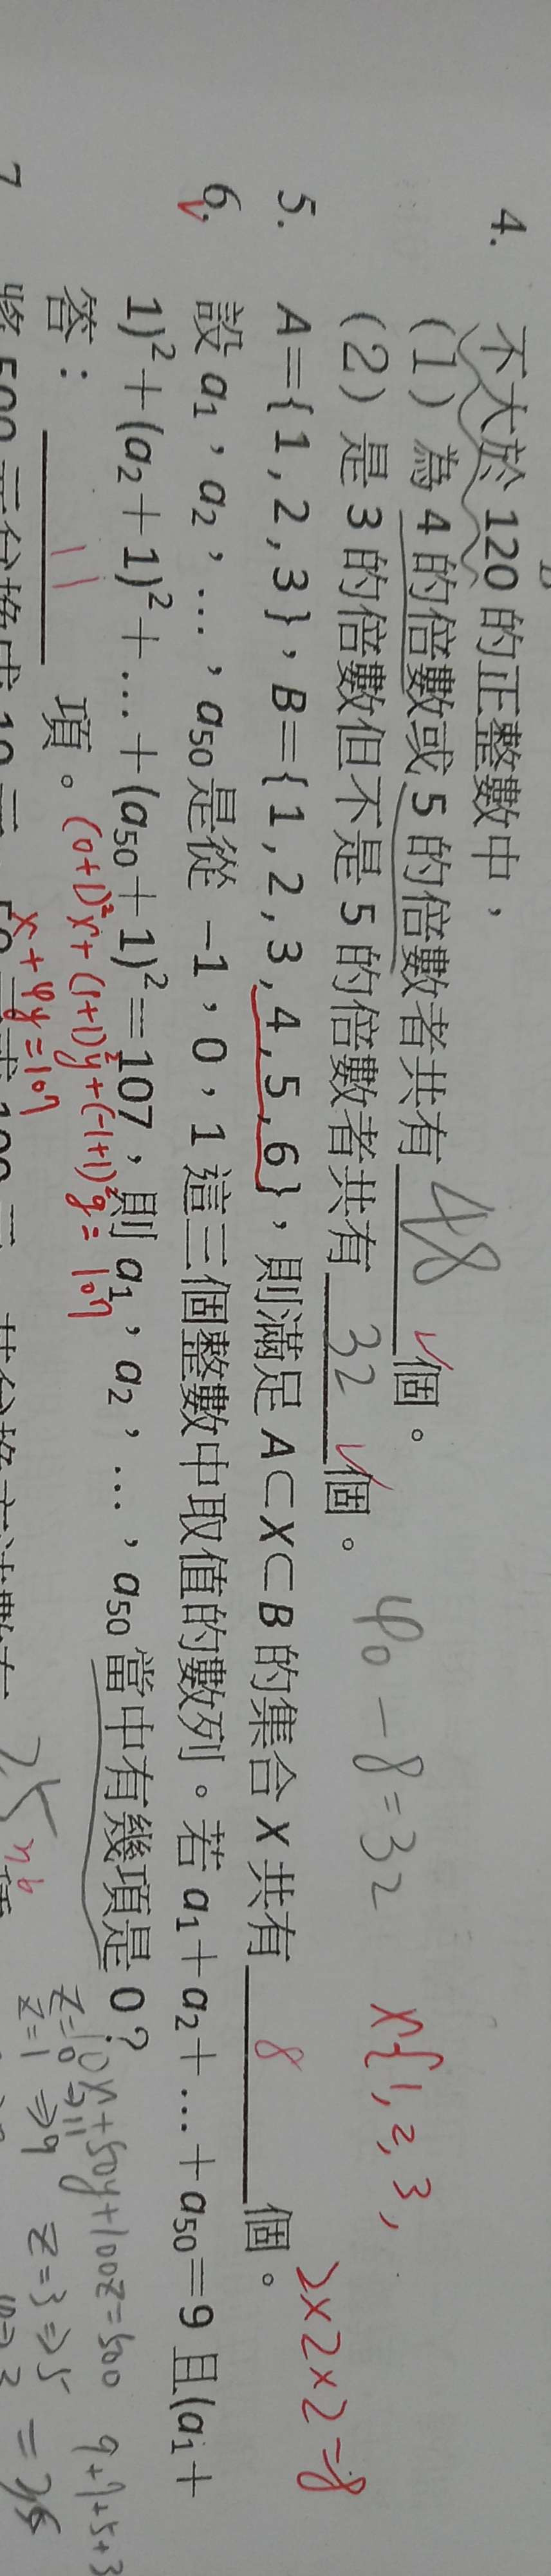 4. 不大於 120 的正整數中，
(1) 為 4 的倍數或 5 的倍數者共有 48 個。
(2) 是 3 的倍數但不是 5 的倍數者共有 32 個。 40-8=32
x{1,2,3,
5. A={1,2,3}，B={1,2,3,4,5,6}，則滿足 A⊂X⊂B 的集合 X 共有 8 個。 2×2×2=8
6. 設 a₁，a₂，…，a₅₀ 是從 -1，0，1 這三個整數中取值的數列。若 a₁+a₂+…+a₅₀=9 且(a₁+
1)²+(a₂+1)²+…+(a₅₀+1)²=107，則 a₁，a₂，…，a₅₀ 當中有幾項是 0？
答： 11 項。 (0+1)²x+(1+1)²y+(-1+1)²z=107
x+4y=107
10x+50y+100z=500
z=0⇒11
z=1⇒9 z=3⇒5
9+7+5+3
7 將 500 元分換成 10 元